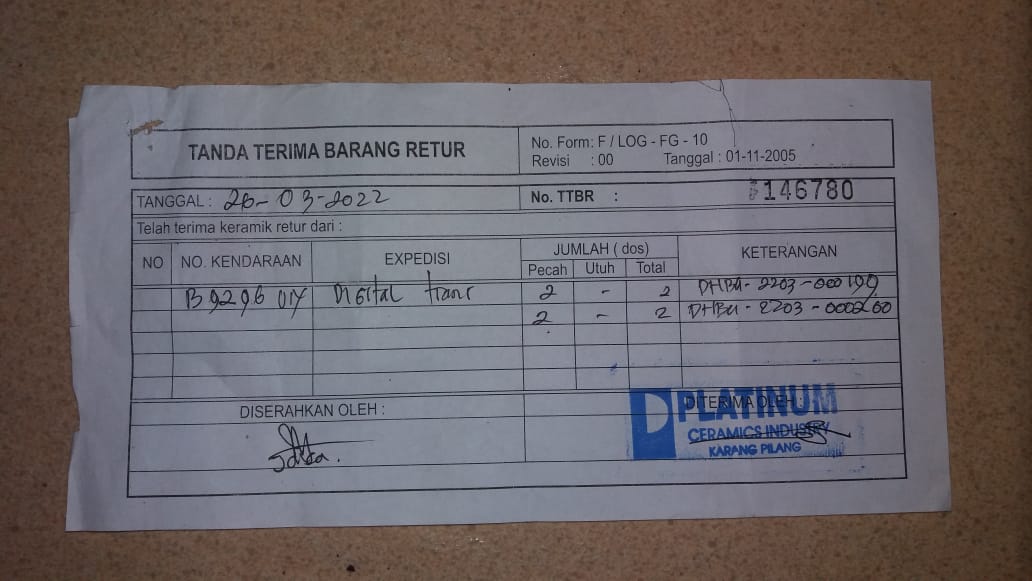 TANDA TERIMA BARANG RETUR
No. Form: F / LOG - FG - 10
Revisi : 00 Tanggal : 01-11-2005
TANGGAL : 26-03-2022 No. TTBR : 146780
Telah terima keramik retur dari :
NO NO. KENDARAAN EXPEDISI JUMLAH ( dos) KETERANGAN
Pecah Utuh Total
B 9296 Digital trans 2 - 2 2203-000199
2 - 2 2203-000200
DISERAHKAN OLEH : DITERIMA OLEH :
PLATINUM
CERAMICS INDUSTRY
KARANG PILANG